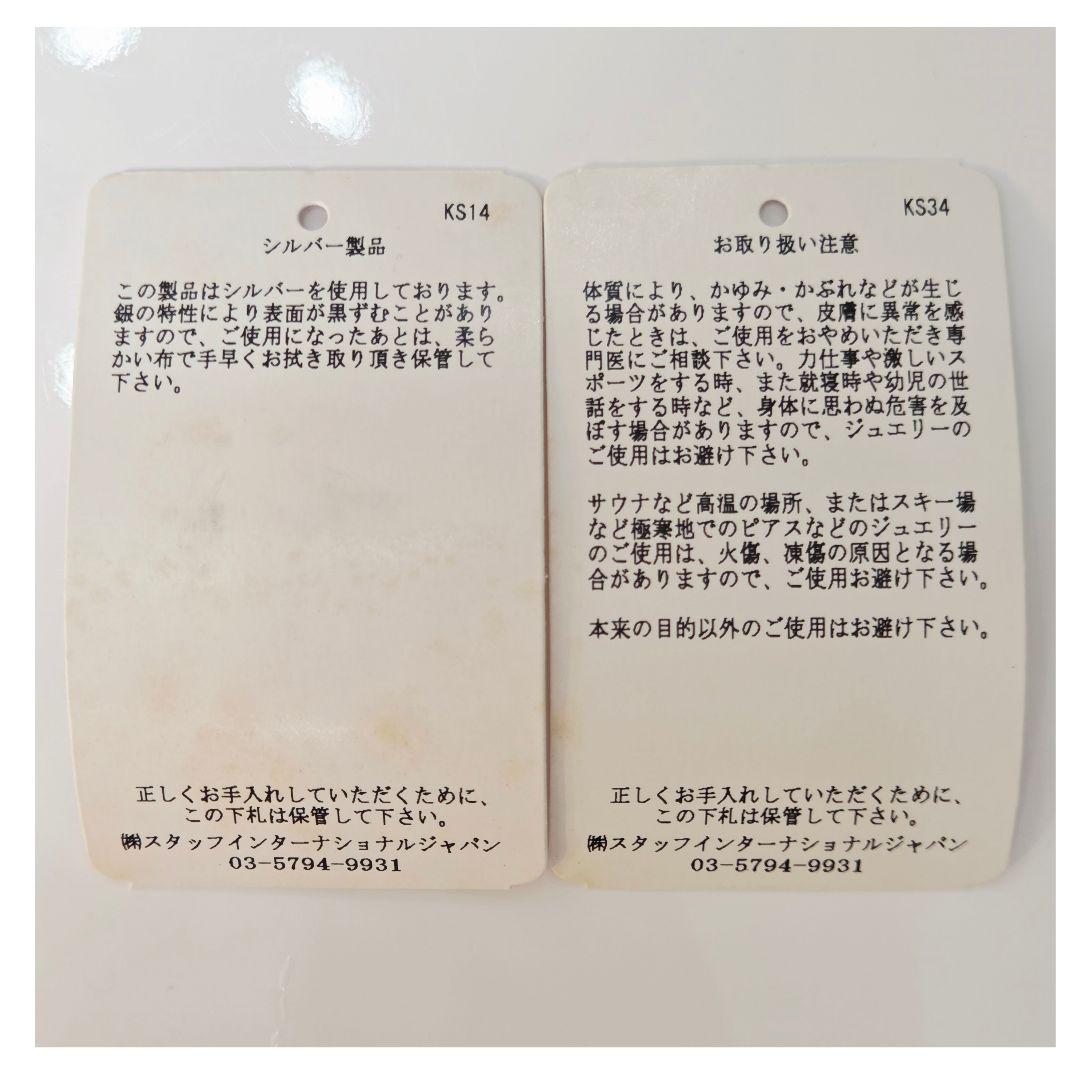 KS14
シルバー製品
この製品はシルバーを使用しております。
銀の特性により表面が黒ずむことがあり
ますので、ご使用になったあとは、柔ら
かい布で手早くお拭き取り頂き保管して
下さい。
正しくお手入れしていただくために、
この下札は保管して下さい。
㈱スタッフインターナショナルジャパン
03-5794-9931
KS34
お取り扱い注意
体質により、かゆみ・かぶれなどが生じ
る場合がありますので、皮膚に異常を感
じたときは、ご使用をおやめいただき専
門医にご相談下さい。力仕事や激しいス
ポーツをする時、また就寝時や幼児の世
話をする時など、身体に思わぬ危害を及
ぼす場合がありますので、ジュエリーの
ご使用はお避け下さい。
サウナなど高温の場所、またはスキー場
など極寒地でのピアスなどのジュエリー
のご使用は、火傷、凍傷の原因となる場
合がありますので、ご使用お避け下さい。
本来の目的以外のご使用はお避け下さい。
正しくお手入れしていただくために、
この下札は保管して下さい。
㈱スタッフインターナショナルジャパン
03-5794-9931